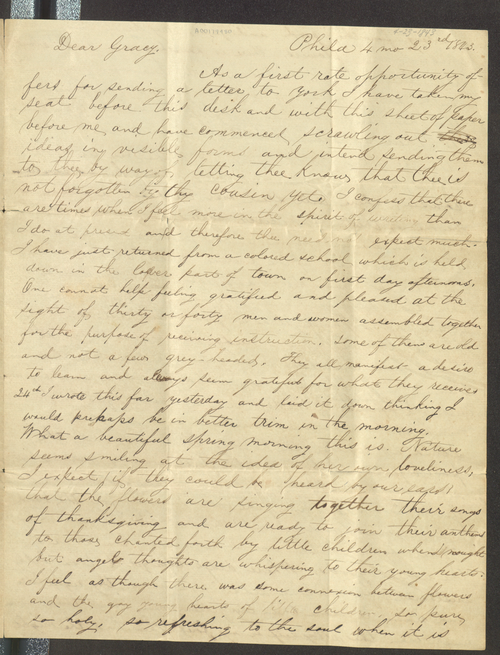 Dear Gracy. Phila 4 mo 23rd 1843.
As a first rate opportunity of-
fers for sending a letter to York I have taken my
seat before this desk and with this sheet of paper
before me and have commenced scrawling out
ideas in visible forms and intend sending them
to thee by way of letting thee know that thee is
not forgotten by thy cousin yet. I confess that there
are times when I feel more in the spirit of writing than
I do at present and therefore thee need not expect much.
I have just returned from a colored school which is held
down in the lower part of town on first day afternoons.
One cannot help feeling gratified and pleased at the
sight of thirty or forty men and women assembled together
for the purpose of receiving instruction. Some of them are old
and not a few grey-headed. They all manifest a desire
to learn and always seem grateful for what they receive
24th I wrote this far yesterday and laid it down thinking I
would perhaps be in better trim in the morning.
What a beautiful spring morning this is. Nature
seems smiling at the idea of her own loveliness,
I expect if they could be heard by our ears
that the flowers are singing together their songs
of thanksgiving and are ready to join their anthems
to those chanted forth by little children when nought
but angel thoughts are whispering to their young hearts:
I feel as though there was some connexion between flowers
and the gay young hearts of little children, so pure,
so holy, so refreshing to the soul when it is